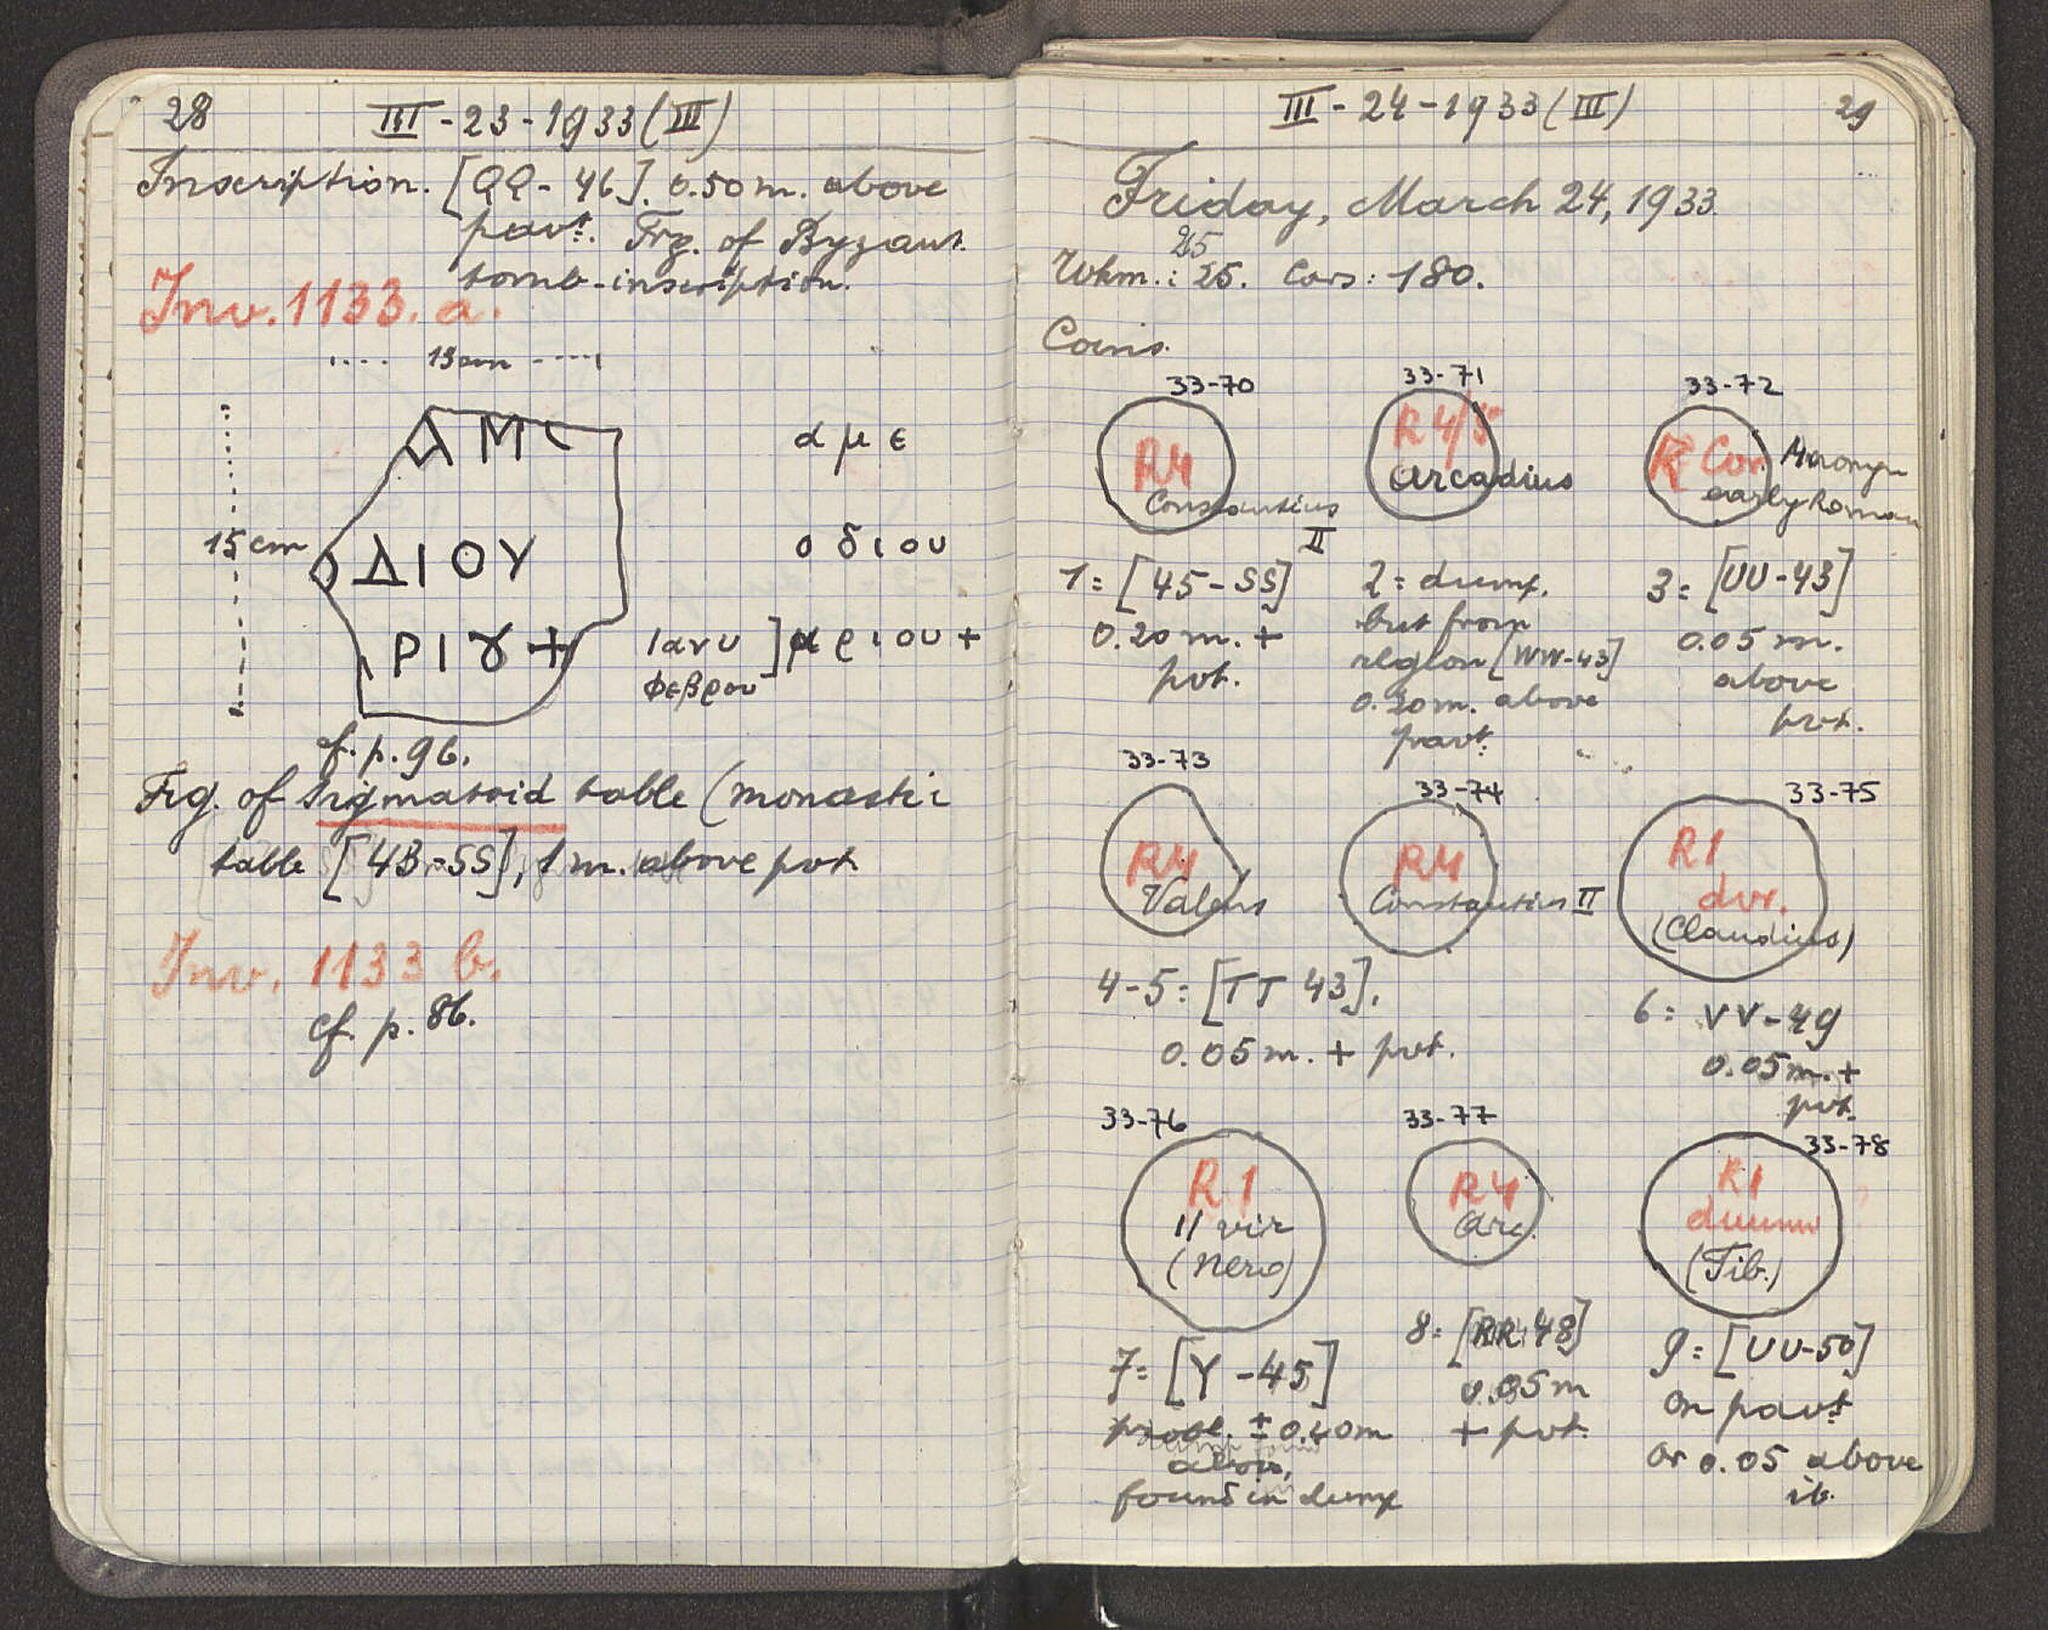 28
III - 23 - 1933 (III)
Inscription. [QQ - 46]. 0.50 m. above
pavt. Frg. of Byzant.
tomb-inscription.
Inv. 1133. a.
13 cm
15 cm
ΑΜ
ΟΔΙΟΥ
ΡΙȢ +
α μ ε
ο δ ι ου
Ιανυ ] α ρ ι ου +
Φεβρου
cf. p. 96.
Frg. of Sigmatoid table (monastic
table [43-SS], 1 m. above pvt.
Inv. 1133 b.
cf. p. 86.
III - 24 - 1933 (III)
29
Friday, March 24, 1933.
25
Wkm.: 25. Cars: 180.
Coins.
33-70
R4
Constantius
II
1 = [45-SS]
0.20 m. +
pvt.
33-71
R 4/5
Arcadius
2 = dump.
but from
region [WW-43]
0.20 m. above
pavt.
33-72
R Cor.
early Roman
3 = [UU-43]
0.05 m.
above
pvt.
33-73
R4
Valens
33-74
R4
Constantius II
4-5 = [TT 43].
0.05 m. + pvt.
33-75
R1
dvr.
(Claudius)
6 = VV-49
0.05 m. +
pvt.
33-76
R 1
II vir
(Nero)
7 = [Y - 45]
probl. ± 0.40 m
above,
found in dump
33-77
R4
Arc.
8 = [RR 48]
0.05 m
+ pvt.
33-78
R1
duumv
(Tib.)
9 = [UU-50]
on pavt
or 0.05 above
it.